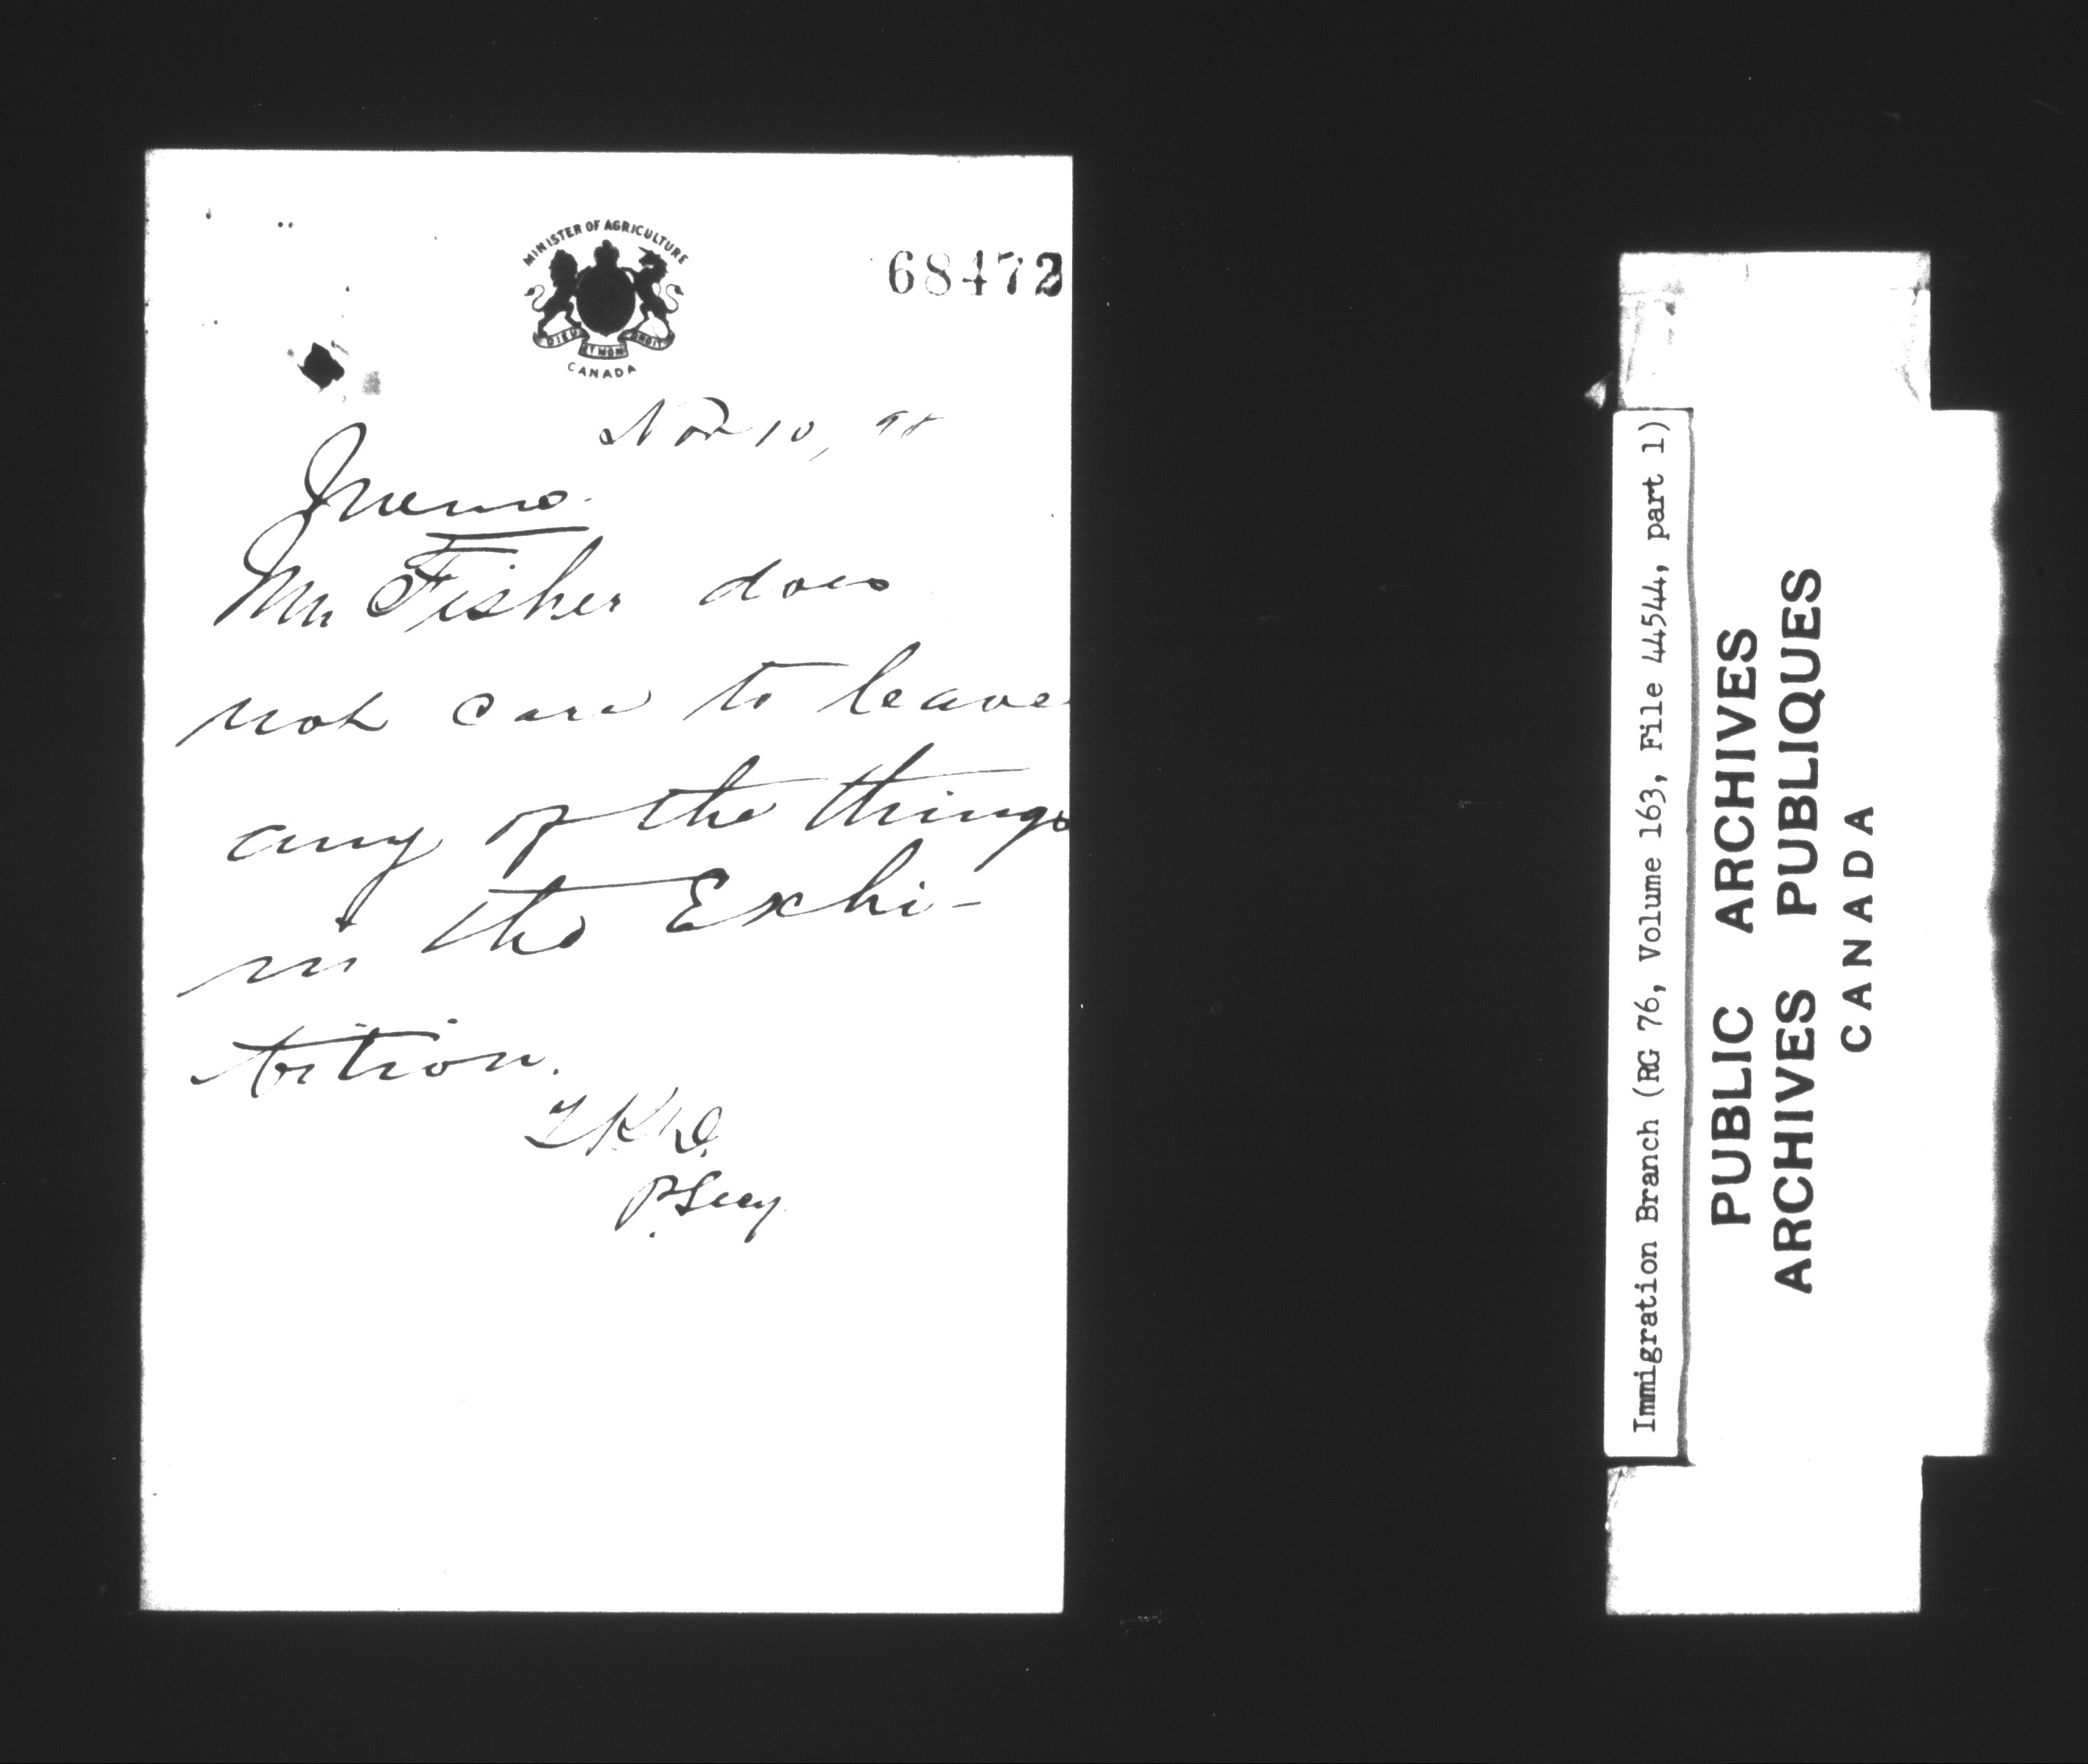 MINISTER OF AGRICULTURE
DIEU ET MON DROIT
CANADA
68472
Nov 10, 98
Memo.
Mr Fisher does
not care to leave
any of the things
in the Exhi-
bition.
P. Secy
Immigration Branch (RG 76, Volume 163, File 44544, part 1)
PUBLIC ARCHIVES
ARCHIVES PUBLIQUES
CANADA